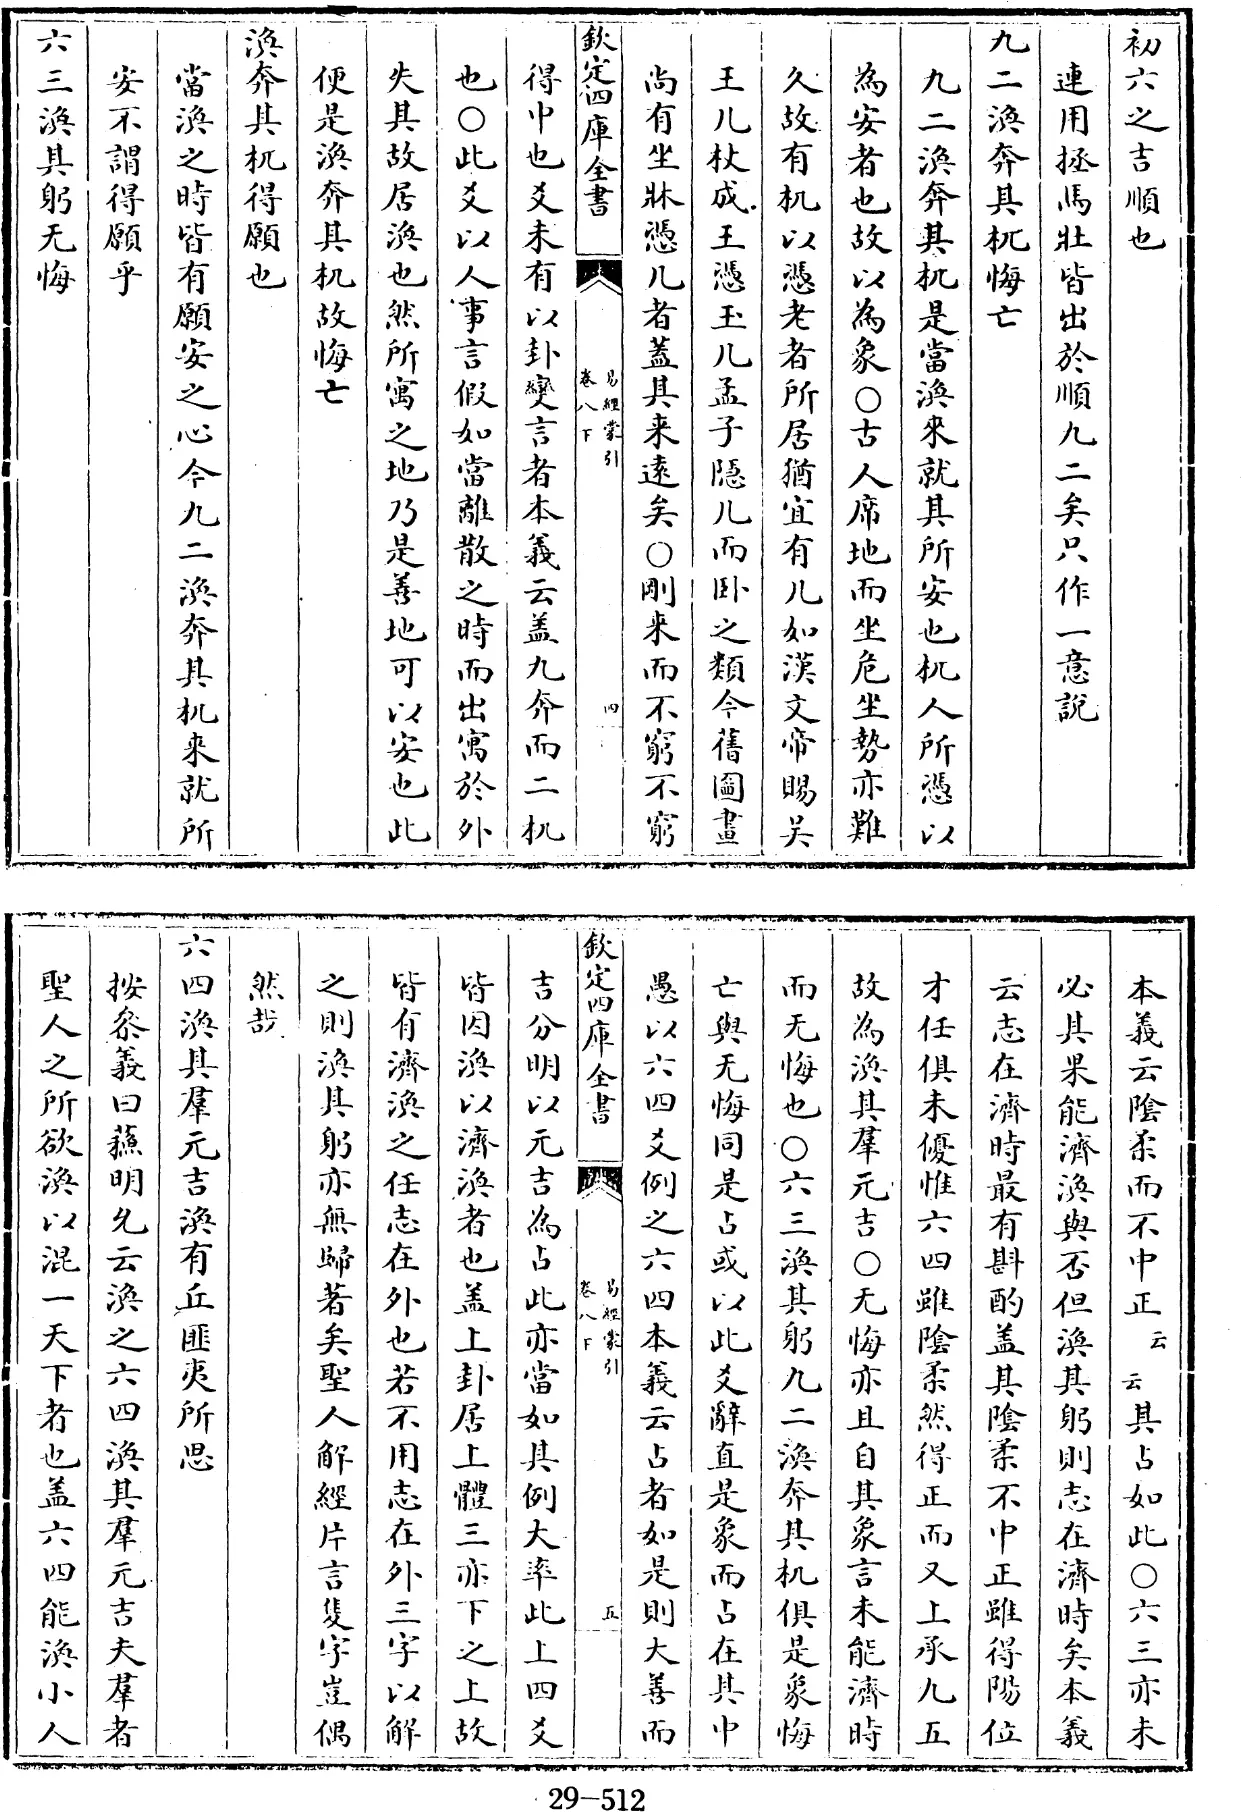 初六之吉順也
連用拯馬壯皆出於順九二矣只作一意說
九二渙奔其杌悔亡
九二渙奔其杌是當渙來就其所安也杌人所憑以
為安者也故以為象○古人席地而坐危坐勢亦難
久故有杌以憑老者所居猶宜有几如漢文帝賜吳
王几杖成王憑玉几孟子隱几而卧之類今舊圖畫
尚有坐牀憑几者蓋其来遠矣○剛来而不窮不窮
欽定四庫全書
易經蒙引
卷八下
四
得中也爻未有以卦變言者本義云盖九奔而二杌
也○此爻以人事言假如當離散之時而出寓於外
失其故居渙也然所寓之地乃是善地可以安也此
便是渙奔其杌故悔亡
渙奔其杌得願也
當渙之時皆有願安之心今九二渙奔其杌来就所
安不謂得願乎
六三渙其躬无悔
本義云陰柔而不中正云云其占如此○六三亦未
必其果能濟渙與否但渙其躬則志在濟時矣本義
云志在濟時最有斟酌盖其陰柔不中正雖得陽位
才任俱未優惟六四雖陰柔然得正而又上承九五
故為渙其羣元吉○无悔亦且自其象言未能濟時
而无悔也○六三渙其躬九二渙奔其杌俱是象悔
亡與无悔同是占或以此爻辭直是象而占在其中
愚以六四爻例之六四本義云占者如是則大善而
欽定四庫全書
易經蒙引
卷八下
五
吉分明以元吉為占此亦當如其例大率此上四爻
皆因渙以濟渙者也盖上卦居上體三亦下之上故
皆有濟渙之任志在外也若不用志在外三字以解
之則渙其躬亦無歸著矣聖人解經片言隻字豈偶
然哉
六四渙其羣元吉渙有丘匪夷所思
按叅義曰蘓明允云渙之六四渙其羣元吉夫羣者
聖人之所欲渙以混一天下者也盖六四能渙小人
29-512